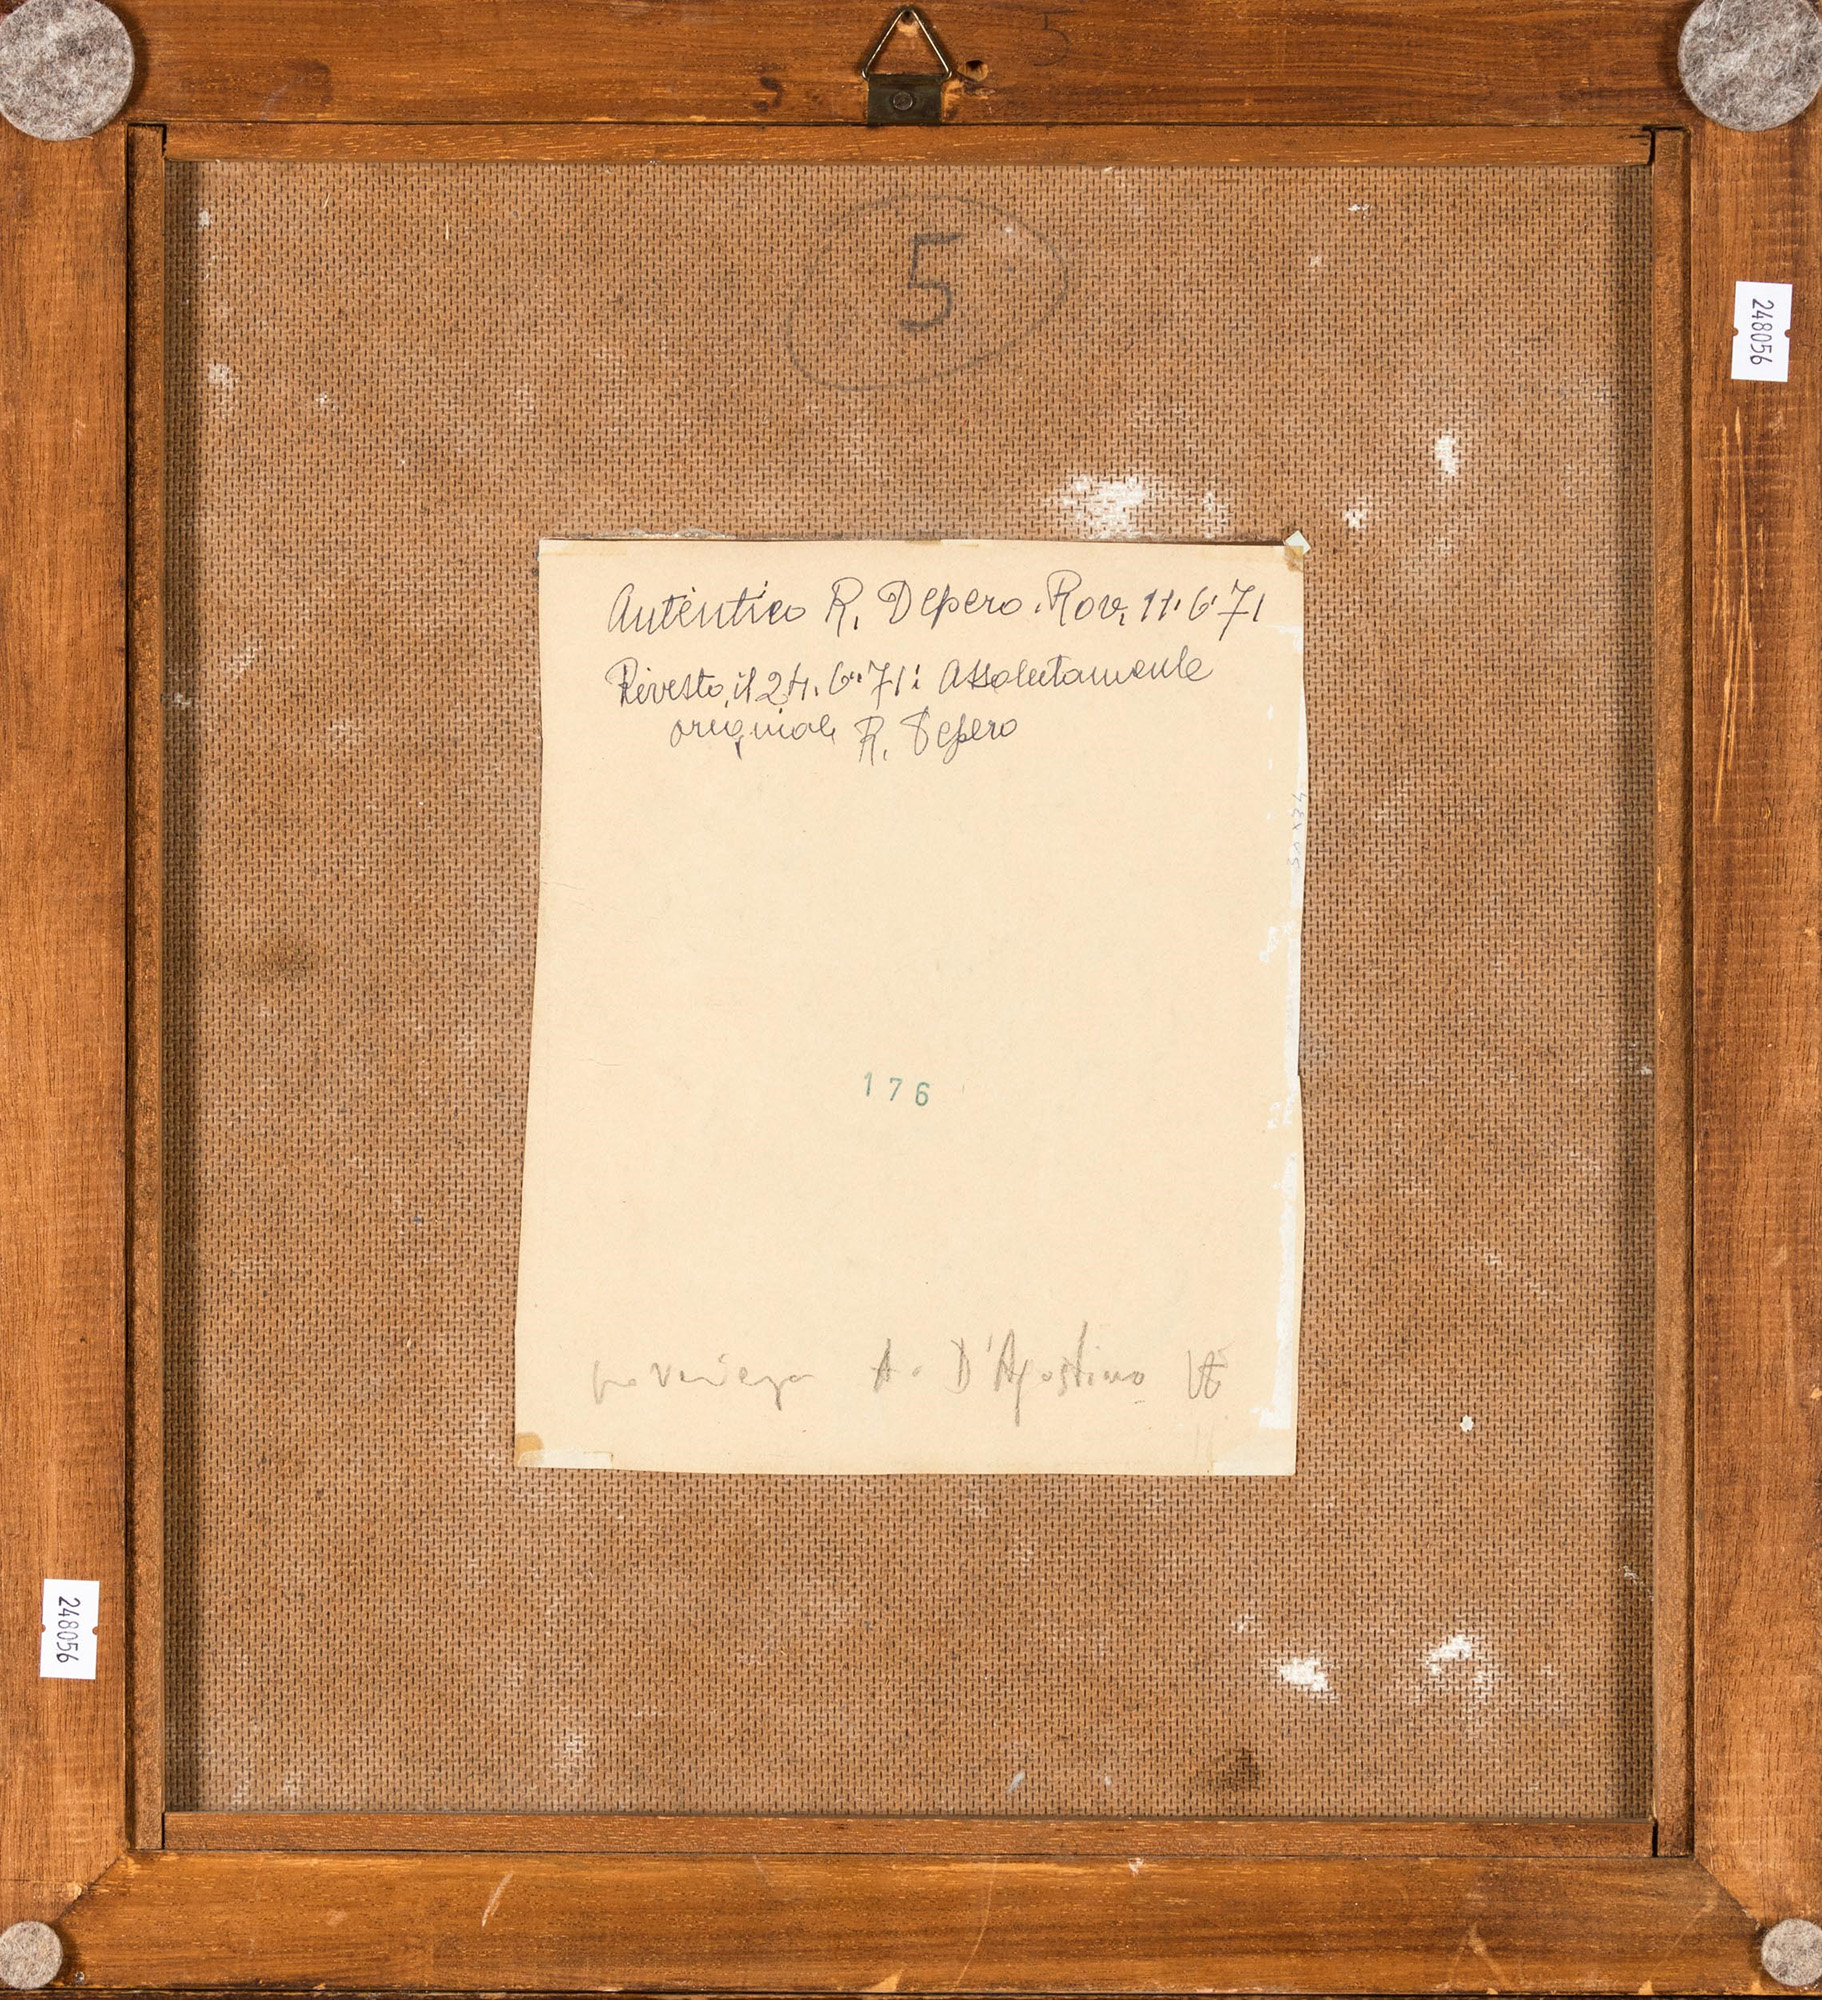 5
248056
Autentico R. Depero. Rov. 11.6.71
Rivisto il 24.6.71: Assolutamente
originale R. Depero
176
A. D'Agostino
248056